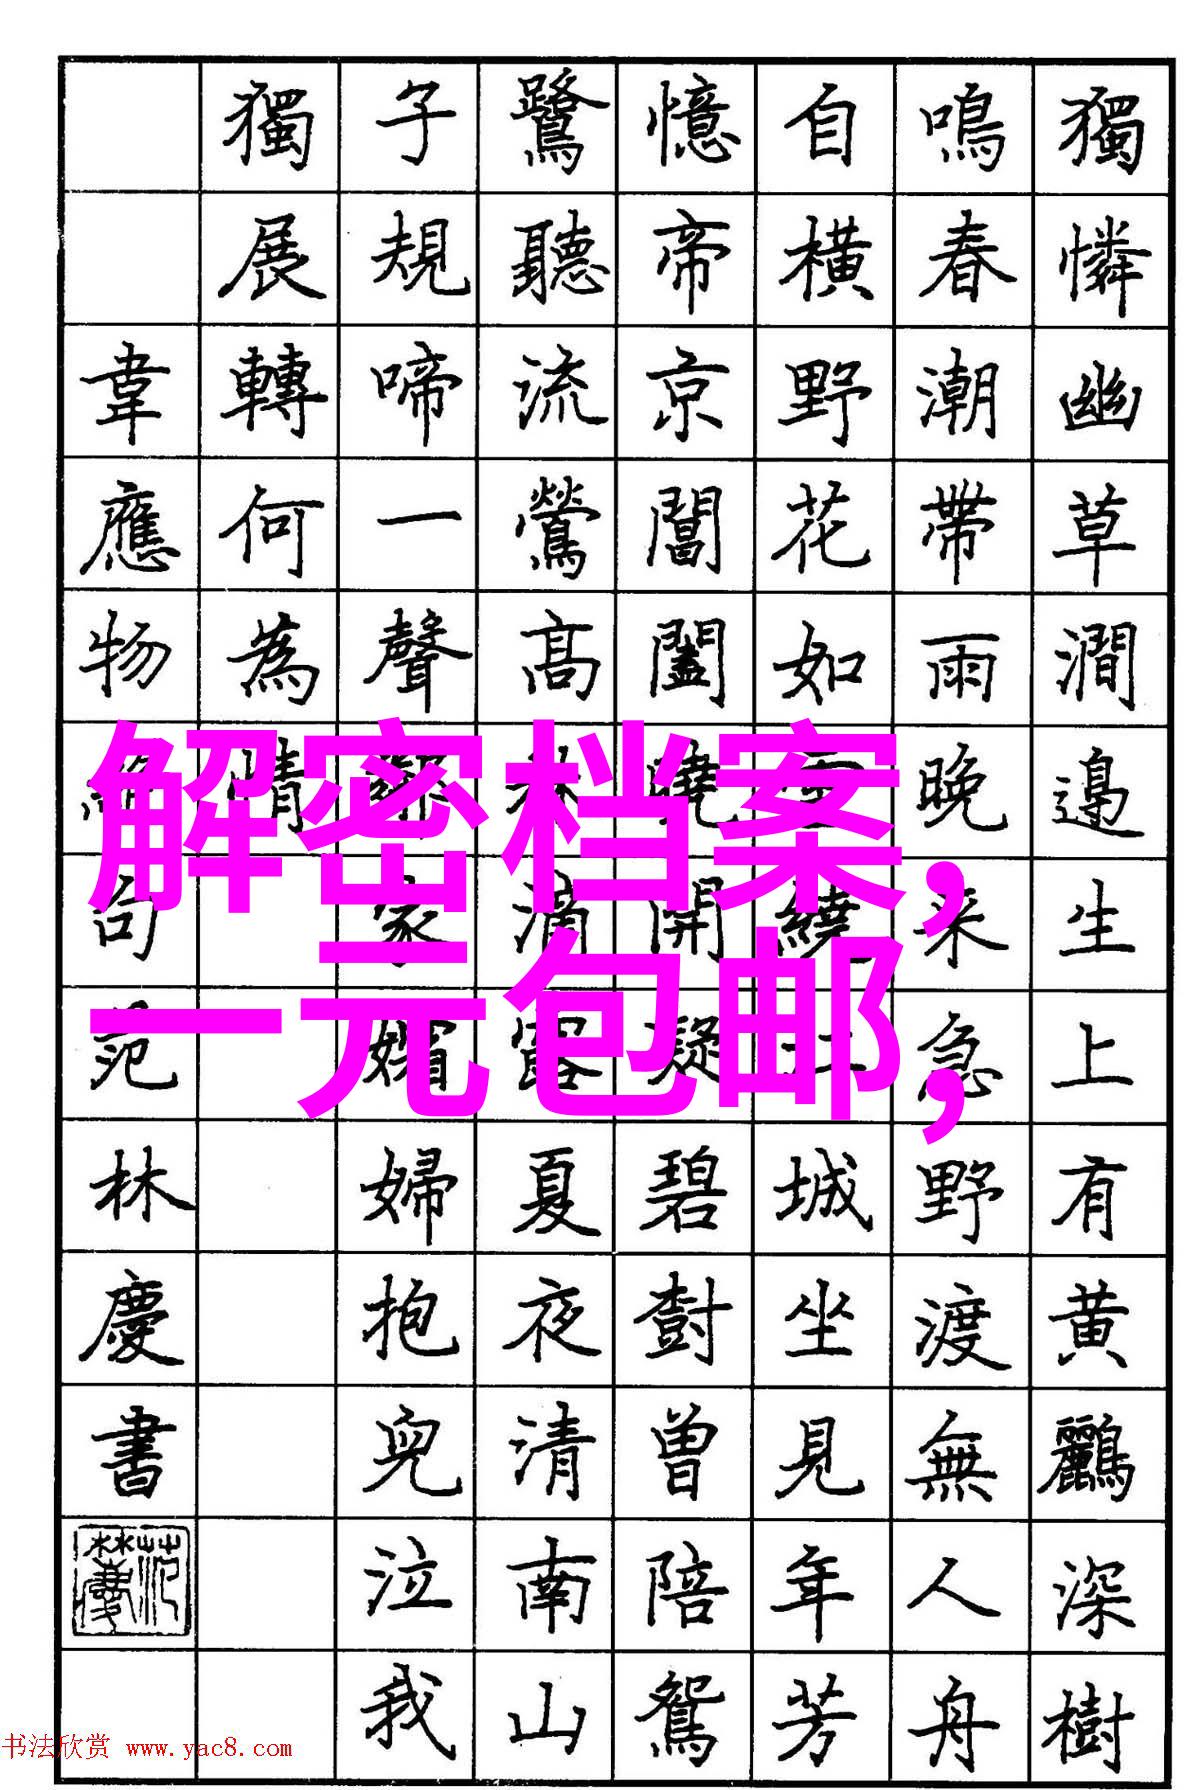 獨憐幽草澗邊生上有黄鸝深樹
鳴春潮帶雨晚来急野渡無人舟
自橫野花如繞城坐見年芳
憶帝京閶闔曉開凝碧樹曾陪鴛
鷺聽流鶯高林滴露夏夜清南山
子規啼一聲鄰家孀婦抱兒泣我
獨展轉何為情
韋應物絶句范林慶書
解密档案，
一元包邮，
书法欣赏 www.yac8.com